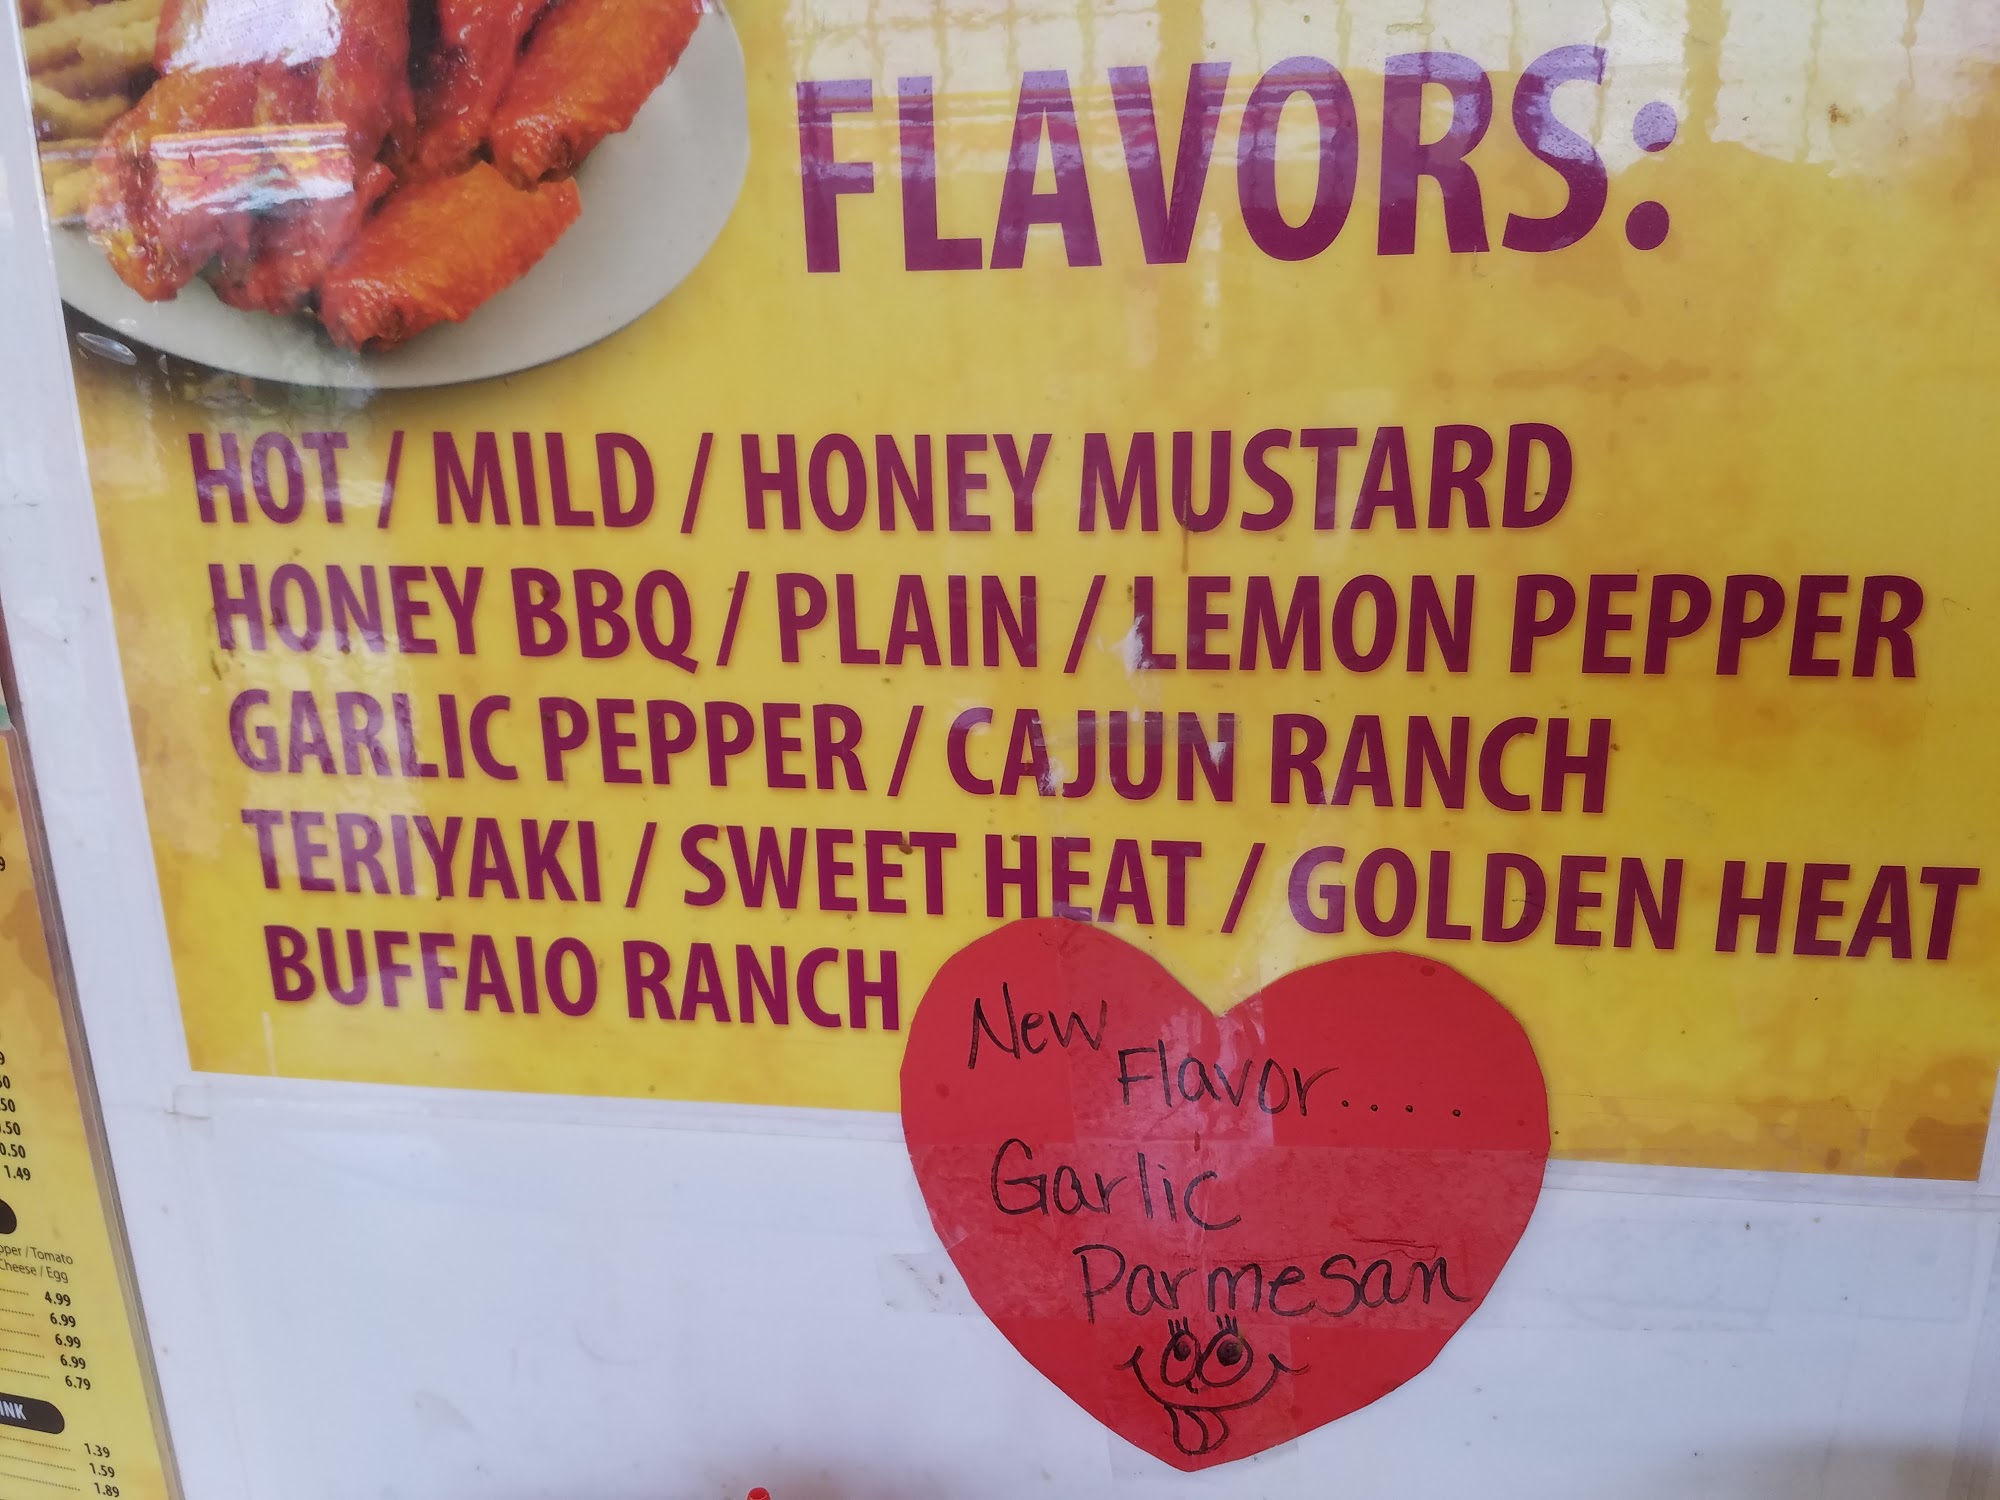 FLAVORS:
HOT / MILD / HONEY MUSTARD
HONEY BBQ / PLAIN / LEMON PEPPER
GARLIC PEPPER / CAJUN RANCH
TERIYAKI / SWEET HEAT / GOLDEN HEAT
BUFFAIO RANCH
New
Flavor.....
Garlic
Parmesan
1.49
/ Tomato
Cheese / Egg
4.99
6.99
6.99
6.99
6.79
1.39
1.59
1.89